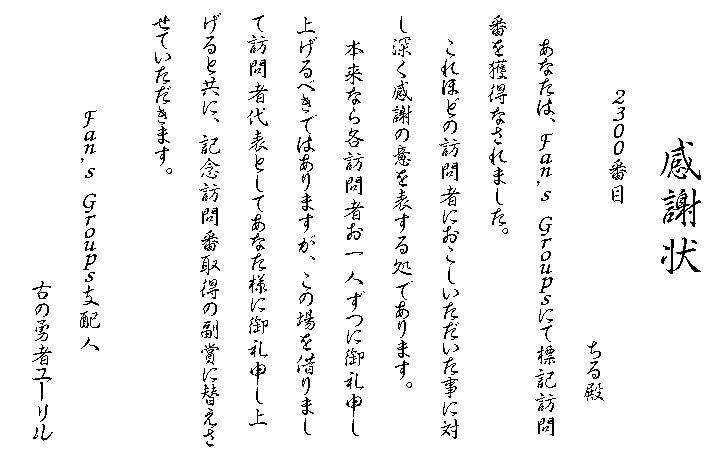 感謝状
2300番目
ちる殿
あなたは、Fan's Groupsにて標記訪問
番を獲得なされました。
これほどの訪問者におこしいただいた事に対
し深く感謝の意を表する処であります。
本来なら各訪問者お一人ずつに御礼申し
上げるべきではありますが、この場を借りまし
て訪問者代表としてあなた様に御礼申し上
げると共に、記念訪問番取得の副賞に替えさ
せていただきます。
Fan's Groups支配人
古の勇者ユーリル